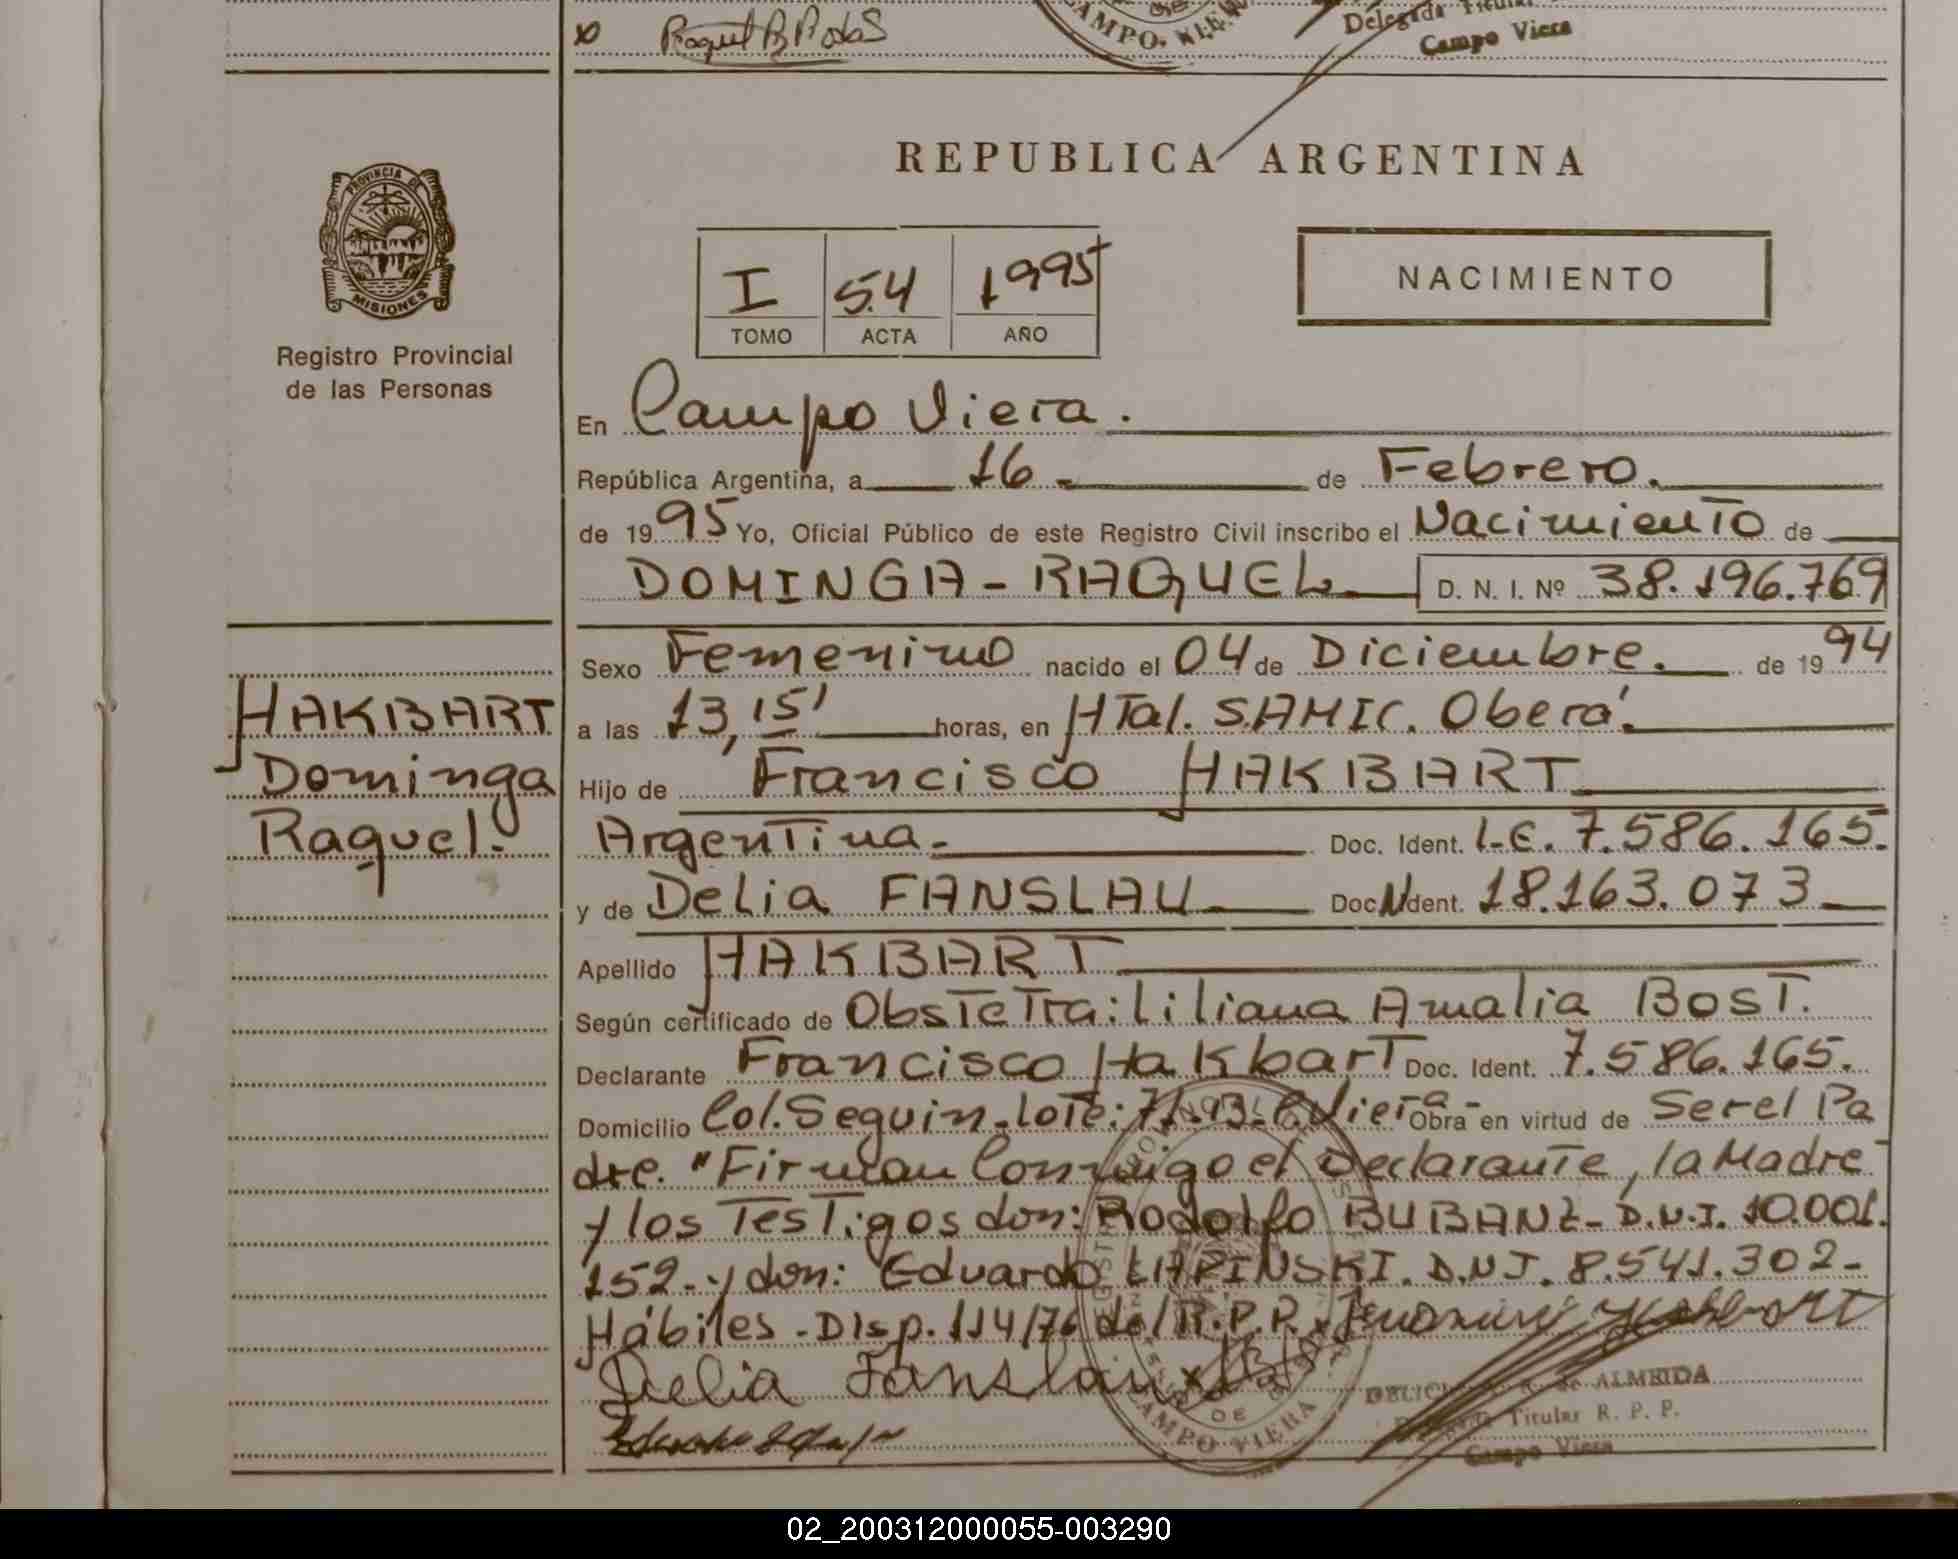 Delegada Titular
Campo Viera
CAMPO VIERA
REPUBLICA ARGENTINA
PROVINCIA DE
MISIONES
Registro Provincial
de las Personas
I 54 1995
TOMO ACTA AÑO
NACIMIENTO
En Campo Viera.
República Argentina, a 16 de Febrero.
de 1995 Yo, Oficial Público de este Registro Civil inscribo el Nacimiento de
DOMINGA - RAQUEL D. N. I. Nº 38.196.769
HAKBART
Dominga
Raquel.
Sexo Femenino nacido el 04 de Diciembre. de 1994
a las 13,15' horas, en HTal. SAMIC. Oberá.
Hijo de Francisco HAKBART
Argentina. Doc. Ident. L.E. 7.586.165.
y de Delia FANSLAU Doc. Ident. 18.163.073
Apellido HAKBART
Según certificado de Obstetra: Liliana Amalia BOST.
Declarante Francisco Hakbart Doc. Ident. 7.586.165.
Domicilio Col. Seguin. Lote: 71-B- C. Viera- Obra en virtud de Ser el Pa
dre. "Firman Conmigo el Declarante, la Madre
y los Testigos don: Rodolfo BUBANZ- D.N.I. 10.001.
152- y don: Eduardo LAPINSKI. D.N.I. 8.541.302-
Hábiles - Disp. 114/76 del R.P.P.
Delia Fanslau
de ALMEIDA
Titular R. P. P.
Campo Viera
CAMPO VIERA
02_200312000055-003290